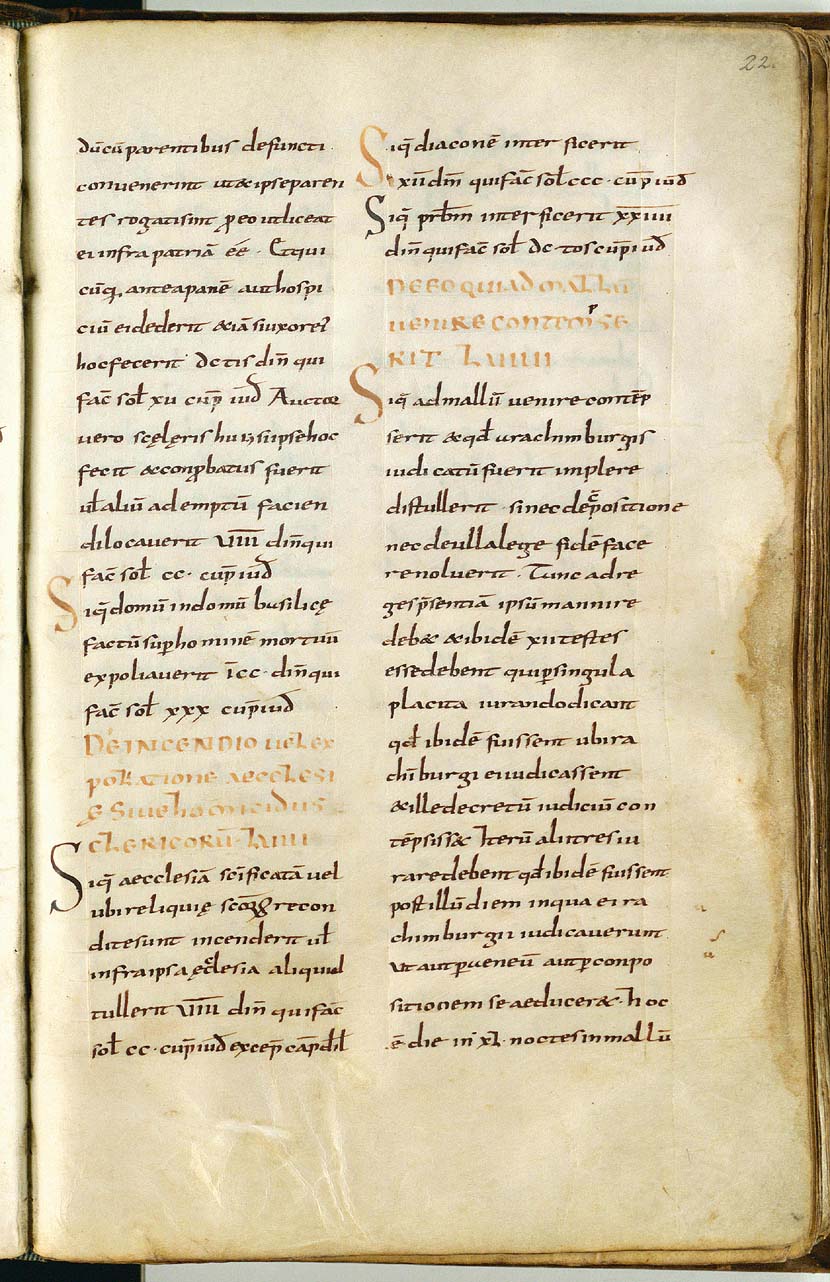 22.
dūcū parentibus defuncti
convenerint ut & ipse paren
tes rogati sint pro eo ut liceat
ei infra patriā ēē · Et qui
cūq; antea panē aut hospi
ciū ei dederit & iā si uxor ei
hoc fecerit · dc tis din̄ qui
fac̄ sol̄ xv cup̄ iud̄ Auctor
vero scęleris huius si ipse hoc
fecit & conprobatus fuerit
ul̄ aliū ad emptū facien
di locaverit viii din̄ qui
fac̄ sol̄ cc · cup̄ iud̄
Siq̄ domū in domū basilicę
factū sup̄ hominē mortuū
expoliaverit īcc · din̄ qui
fac̄ sol̄ xxx cup̄ iud̄
DE INCENDIO VEL EX
POLIATIONE AECCLESI
Ę SIVE HOMICIDIIS
CLERICORŪ · LVIII
Siq̄ aecclesiā scīficatā vel
ubi reliquię scōꝝ recon
dite sunt incenderit ul̄
infra ipsa ęclesia aliquid
tullerit viii din̄ qui fac̄
sol̄ cc · cup̄ iud̄ excep̄ cap̄ dil̄
Siq̄ diaconē interficerit
xii din̄ qui fac̄ sol̄ ccc · cup̄ iud̄
Siq̄ prb̄m interficerit xxiiii
din̄ qui fac̄ sol̄ dc · tos cup̄ iud̄
DE EO QUI AD MALLŪ
VENIRE CONTEMPSE
RIT LVIIII
Siq̄ ad mallū venire contēp
serit & qd̄ a rachimburgis
iudicatū fuerit implere
distullerit · si nec de cōpositione
nec de ulla lege fidē face
re noluerit · Tunc ad re
gis p̄sentiā ipsū mannire
deb& & ibidē xii testes
esse debent qui p̱ singula
placita iurando dicant
qd̄ ibidē fuissent ubi ra
chīburgi eiudicassent
& ille decretū iudiciū con
tēpsiss& Iterū alii tres iu
rare debent qd̄ ibidē fuissent
post illū diem in qua ei ra
chimburgii iudicaverunt
ut aut p̱ veneū aut p̱ conpo
sitionem se aeducer& · hoc
ē die in xl · noctes in mallū